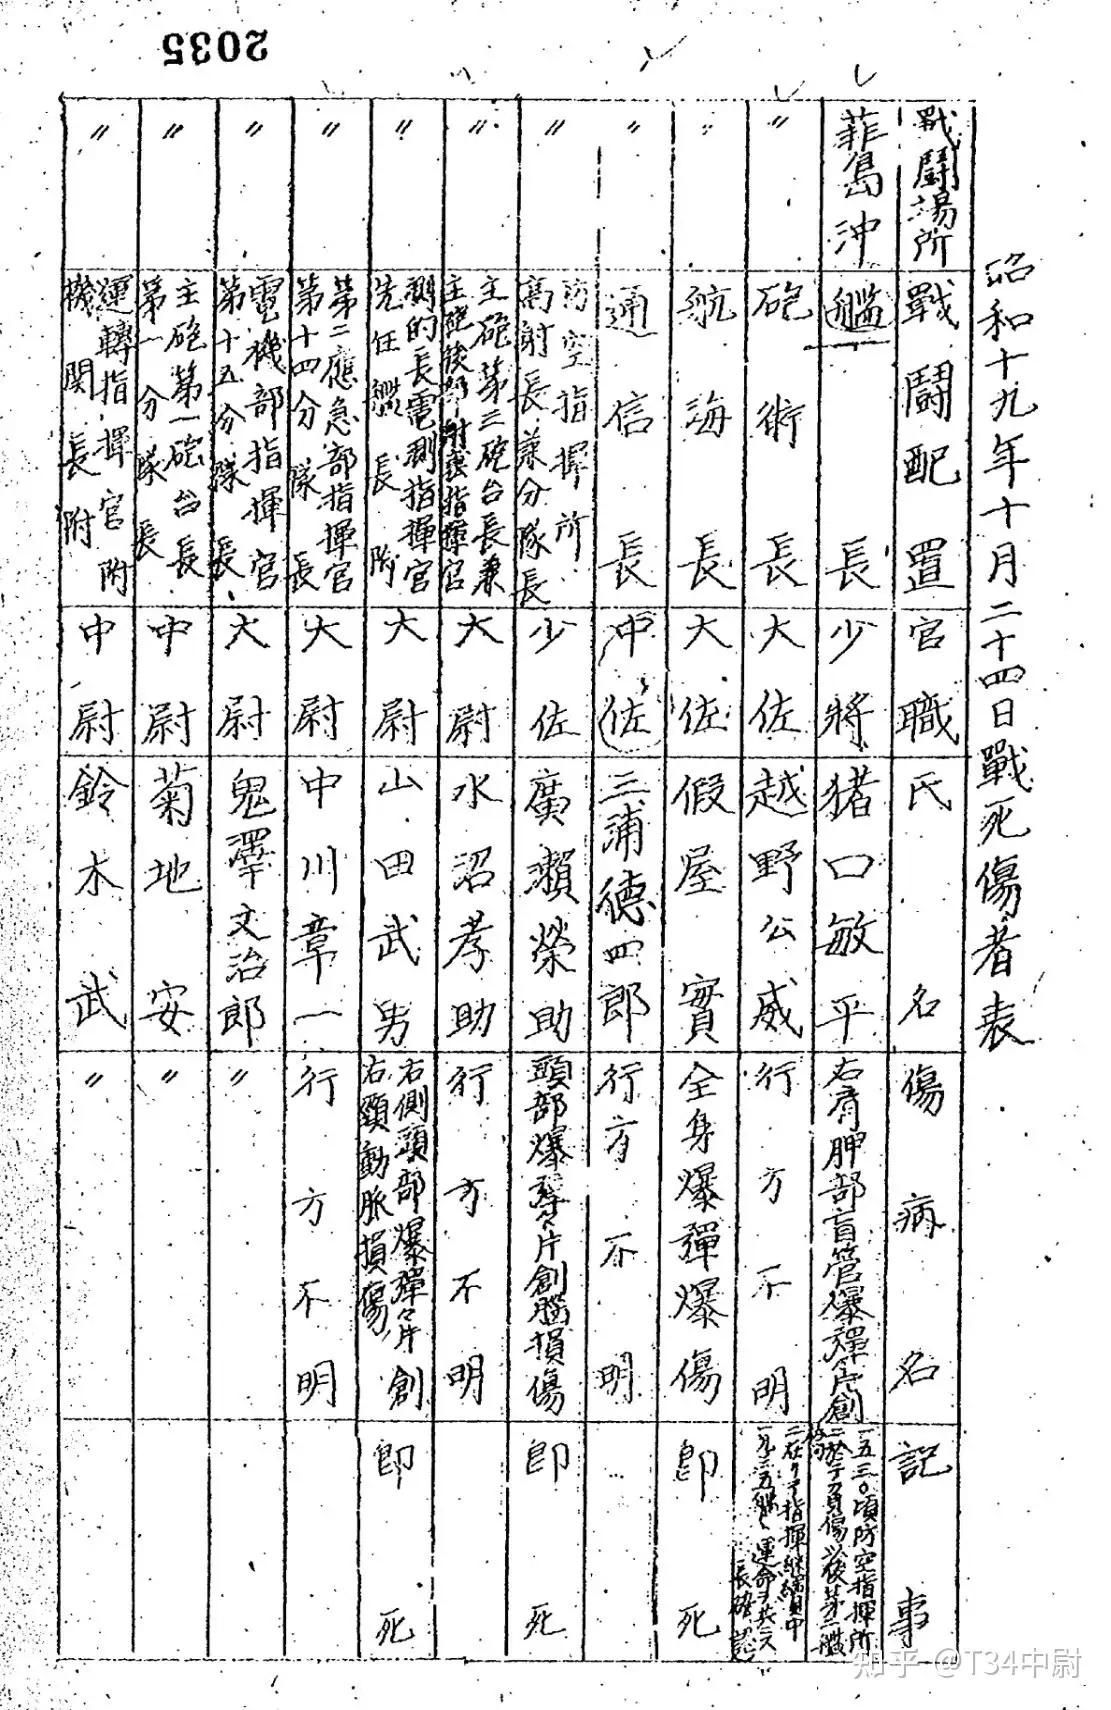 2035
昭和十九年十月二十四日戰死傷者表
戰鬪場所 戰鬪配置 官職 氏名 傷病名 記事
菲島沖 艦長 少將 猪口敏平 右肩胛部盲管爆彈片創 一五三〇頃防空指揮所ニ於テ負傷以後第二艦橋ニ在リテ指揮継續中 一九三五艦ト運命ヲ共ニス
〃 砲術長 大佐 越野公威 行方不明
〃 航海長 大佐 假屋實 全身爆彈爆傷 即死
〃 通信長 中佐 三浦德四郎 行方不明
〃 防空指揮所 高射長兼分隊長 少佐 廣瀨榮助 頭部爆彈々片創腦損傷 即死
〃 主砲第三砲台長兼 大尉 水沼孝助 行方不明
〃 測的長電測指揮官 先任艦長附 大尉 山田武男 右側頭部爆彈々片創 右頸動脈損傷 即死
〃 第二應急部指揮官 第十四分隊長 大尉 中川章一 行方不明
〃 電機部指揮官 第十五分隊長 大尉 鬼澤文治郎 〃
〃 主砲第一砲台長 第一分隊長 中尉 菊地安 〃
〃 運轉指揮官附 機関長附 中尉 鈴木武 〃
知乎 @T34中尉